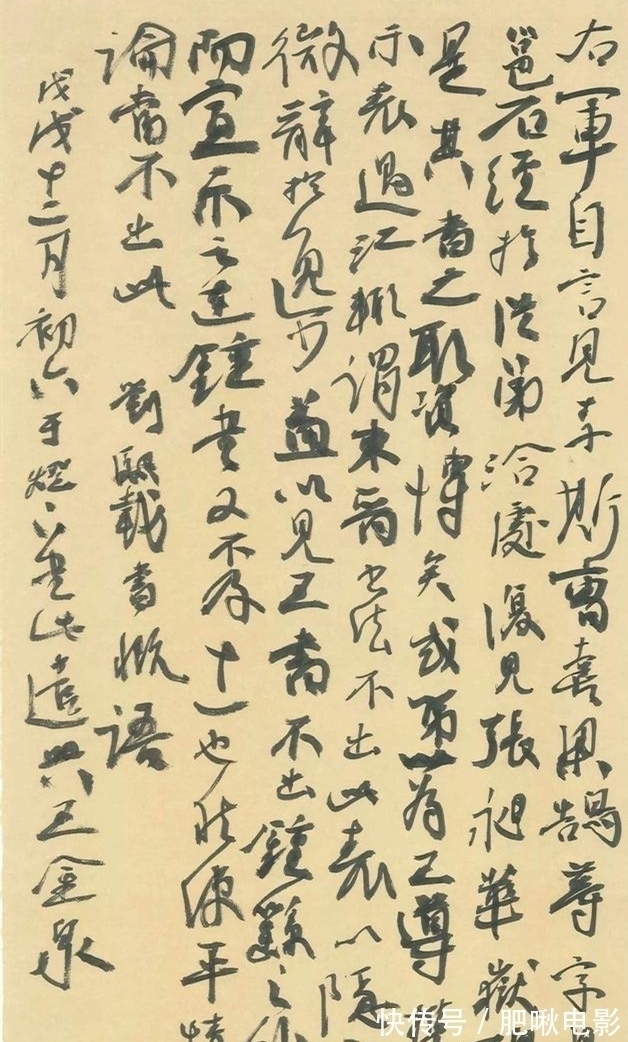 右軍自言見李斯曹喜梁鵠等字
邕石經於從弟洽處復見張昶華嶽
是其書之取資博矣或第以為王導攜
示表過江輒謂東晉書法不出此表以隱
微辭於逸少蓋以見王書不出鍾繇之外
而宣示之在鍾書又不及十一也然使平情
論當不出此 劉熙載書概語
戊戌十二月初六于燈下書此遣興王金泉
快传号/肥啾电影